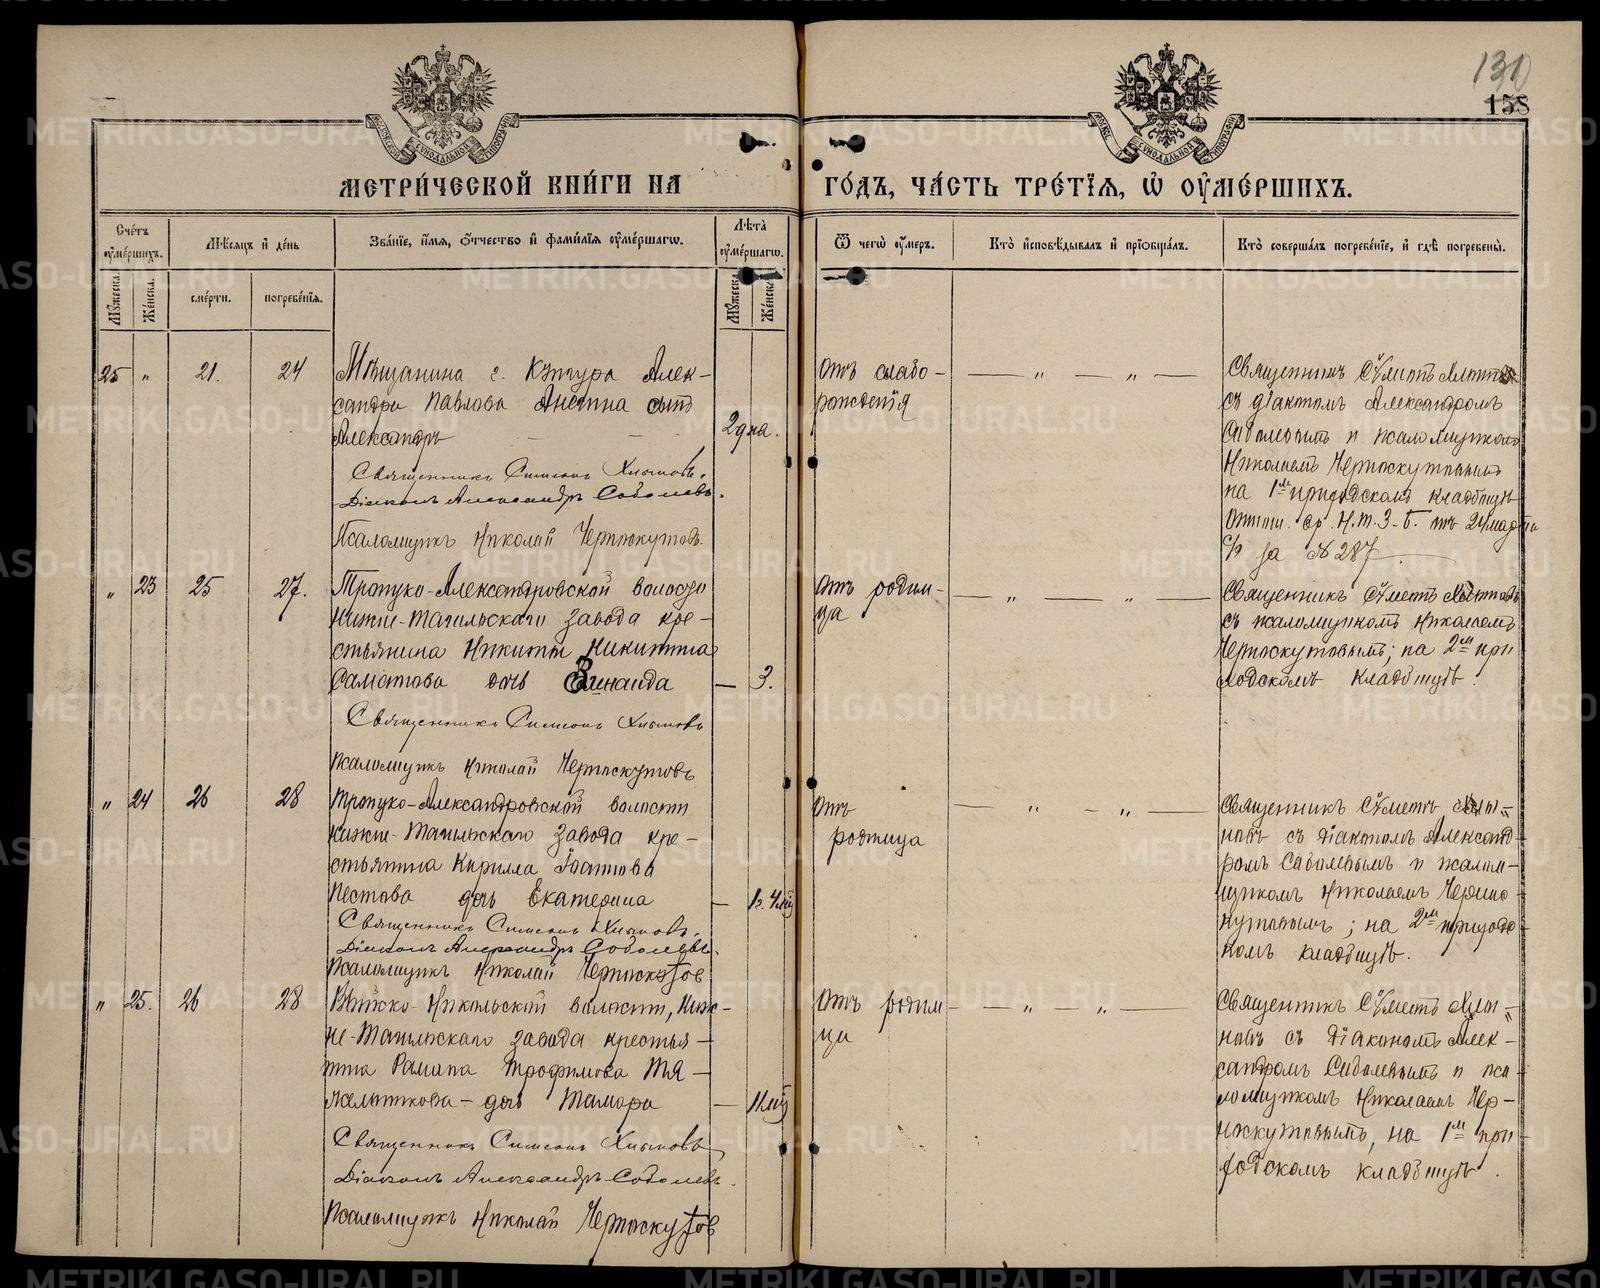 130
158
МЕТРИ́ЧЕСКОЙ КНИ́ГИ НА
ГО́ДЪ, ЧА́СТЬ ТРЕ́ТІѦ, Ѽ ОУ҆МЕ́РШИХЪ.
Счетъ оу҆ме́ршихъ.
Мѣсяцъ и҆ де́нь
Зва́ніе, и҆́мя, ѻ҆́тчество и҆ фами́лія оу҆ме́ршагѡ.
Лѣта оу҆ме́ршагѡ.
Ѿ чегѡ̀ оу҆́меръ.
Кто̀ и҆сповѣ́дывалъ и҆ пріѡбща́лъ.
Кто̀ соверша́лъ погребе́ніе, и҆ гдѣ̀ погребены̀.
Мꙋ́жеска.
Же́нска.
сме́рти.
погребе́нія.
Мꙋ́жеска.
Же́нска.
25 " 21. 24
Мѣщанина г. Алек-
сандра Павлова сынъ
Александръ
2 дня.
Священникъ Симеонъ
Діаконъ Александръ Соболевъ.
Псаломщикъ Николай Черноскутовъ.
Отъ слабо-
рожденія
— " — " —
Священникъ Сѵмеонъ
съ діакономъ Александромъ
Соболевымъ и псаломщикомъ
Николаемъ Черноскутовымъ
на 1мъ приходскомъ кладбищѣ
24 марта
с/г за № 287
" 23 25 27.
Троицко-Александровской волости
Нижне-Тагильскаго завода кре-
стьянина Никиты Никитина
дочь Зинаида
— 3.
Священникъ Симеонъ
Псаломщикъ Николай Черноскутовъ
Отъ родим-
ца
— " — " —
Священникъ Сѵмеонъ
съ псаломщикомъ Николаемъ
Черноскутовымъ; на 2мъ при-
ходскомъ кладбищѣ.
" 24 26 28
Троицко-Александровской волости
Нижне-Тагильскаго завода кре-
стьянина Кирилла Іоаннова
Пестова дочь Екатерина
— 1 г. 4 м.
Священникъ Симеонъ
Діаконъ Александръ Соболевъ.
Псаломщикъ Николай Черноскутовъ
Отъ
родимца
— " — " —
Священникъ Сѵмеонъ
новъ съ діакономъ Александ-
ромъ Соболевымъ и псалом-
щикомъ Николаемъ Чернос-
кутовымъ; на 2мъ приходс-
комъ кладбищѣ.
" 25. 26 28
Выйско-Никольской волости, Ниж-
не-Тагильскаго завода крестья-
нина Романа Трофимова
дочь Тамара
— 11 м.
Священникъ Симеонъ
Діаконъ Александръ Соболевъ.
Псаломщикъ Николай Черноскутовъ
Отъ родим-
ца
— " — " —
Священникъ Сѵмеонъ
новъ съ діакономъ Алек-
сандромъ Соболевымъ и пса-
ломщикомъ Николаемъ Чер-
носкутовымъ, на 1мъ при-
ходскомъ кладбищѣ.
METRIKI.GASO-URAL.RU